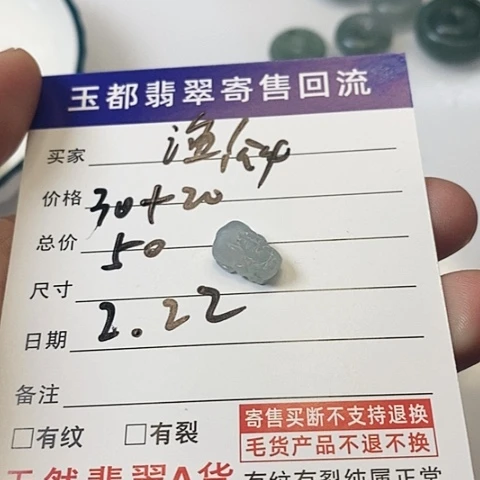 玉都翡翠寄售回流
买家 渔
价格 30+20
总价 50
尺寸
日期 2.22
备注
□有纹 □有裂
寄售买断不支持退换
毛货产品不退不换
天然翡翠A货 有纹有裂纯属正常